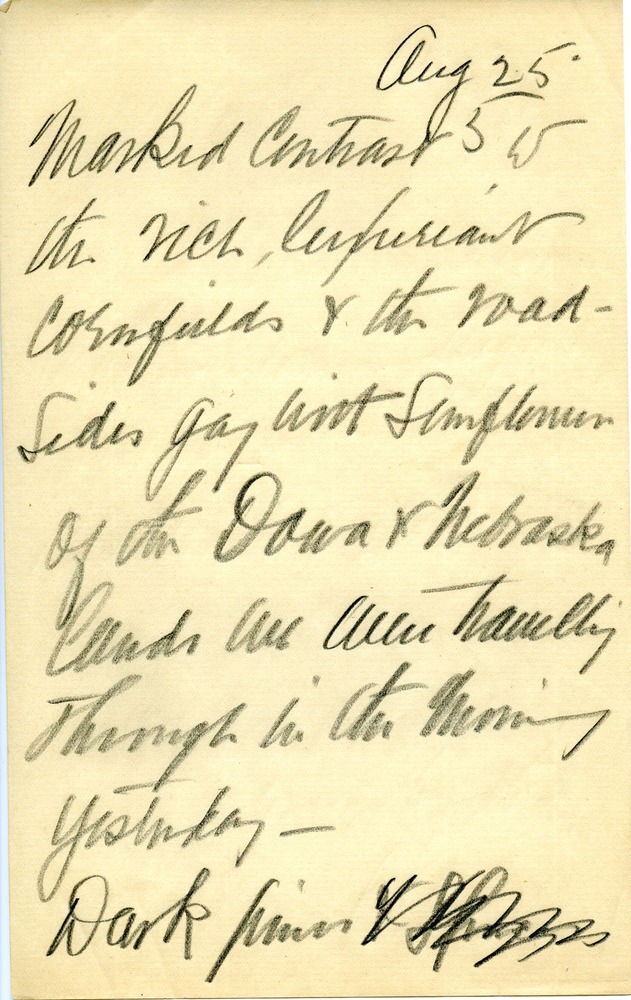 Aug 25.
Marked Contrast to
the rich, luxuriant
Cornfields & the road-
sides gay with Sunflowers
of the Iowa & Nebraska
lands we were travelling
through in the morning
yesterday —
Dark pines &